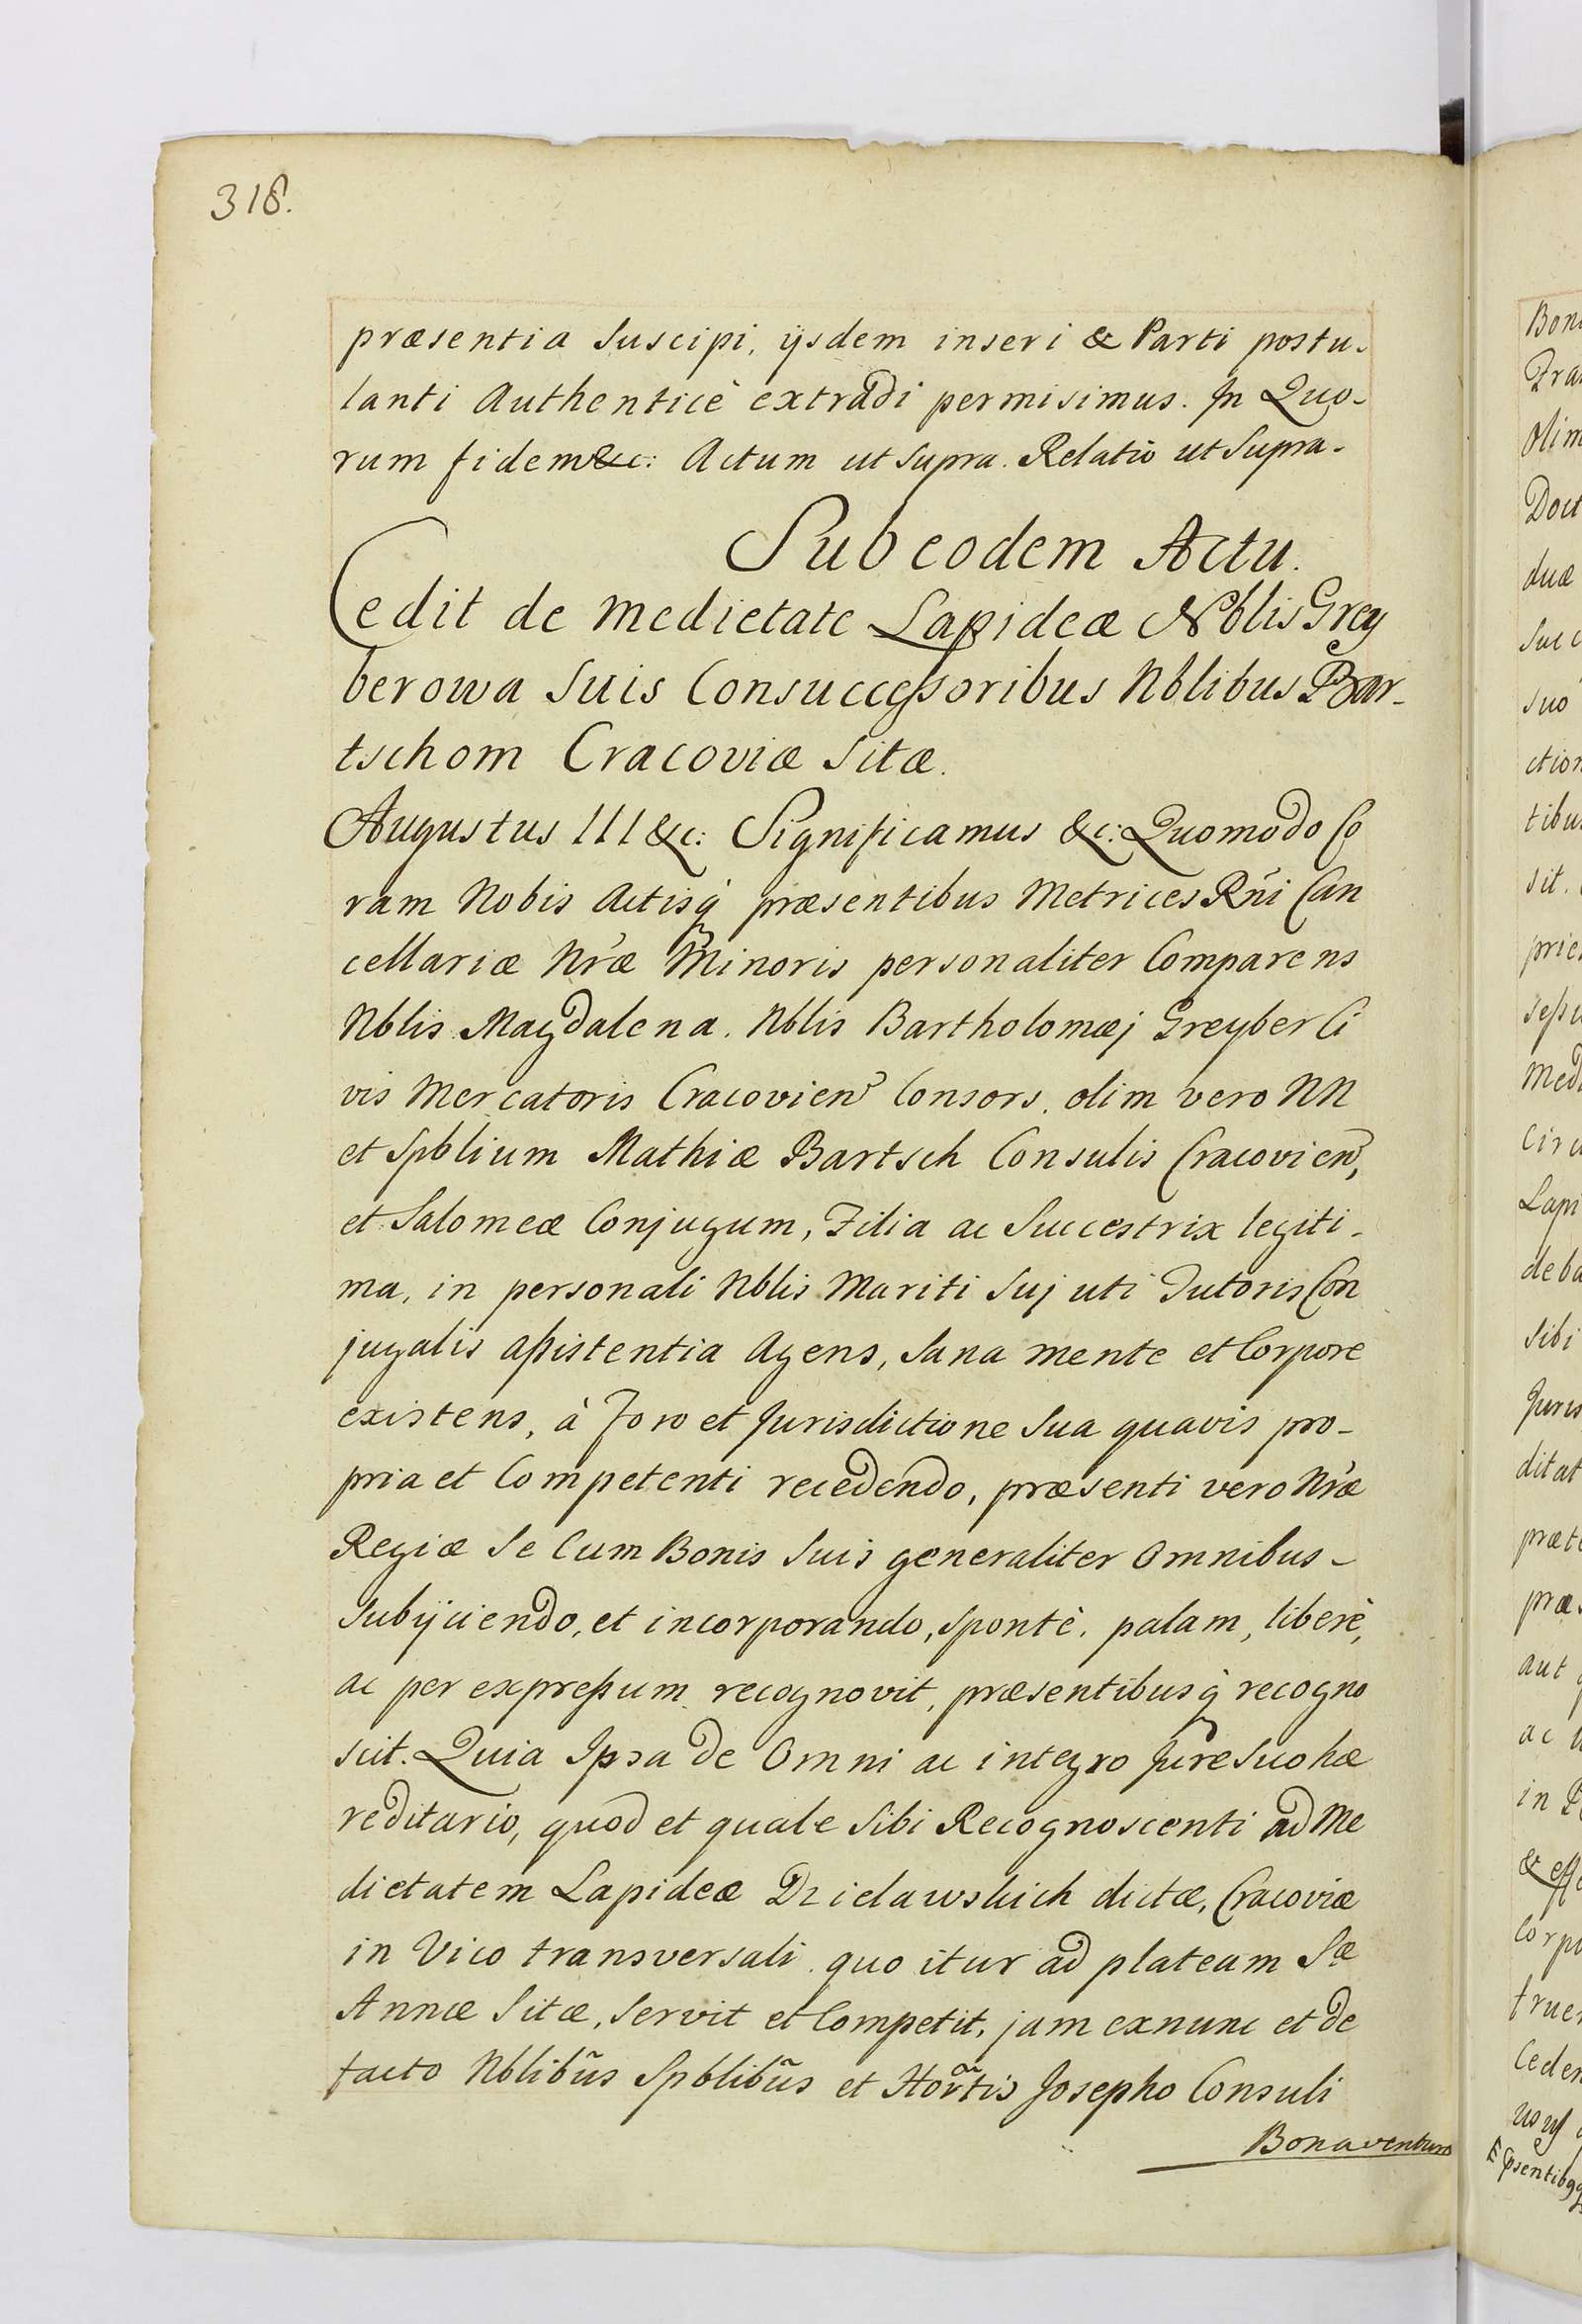 318.
præsentia Suscipi, ijsdem inseri & Parti postu-
lanti Authenticè extradi permisimus. In Quo-
rum fidem &c: Actum ut supra. Relatio ut Supra.
Sub eodem Actu.
Cedit de medietate Lapideæ Nblis Grey
berowa Suis Consuccessoribus Nblibus Bar-
tschom Cracoviæ Sitæ.
Augustus III &c: Significamus &c: Quomodo Co
ram Nobis Actisq̀ præsentibus Metrices Rñi Can
cellariæ Nr̃æ Minoris personaliter Comparens
Nblis Magdalena. Nblis Bartholomæj Greyber Ci
vis Mercatoris Cracovien̄ Consors, olim vero NN
et Spblium Mathiæ Bartsch Consulis Cracovien̄,
et Salomeæ Conjugum, Filia ac Succestrix legiti-
ma, in personali Nblis Mariti Suj uti Tutoris Con
jugalis assistentia Agens, Sana mente et Corpore
existens, à Foro et Jurisdictione Sua quavis pro-
pria et Competenti recedendo, præsenti vero Nr̃æ
Regiæ Se Cum Bonis Suis generaliter Omnibus -
Subijciendo, et incorporando, Spontè, palam, liberè,
ac per expressum recognovit, præsentibusq̀ recogno
scit. Quia Ipsa de Omni ac integro Jure Suo hæ
reditario, quod et quale Sibi Recognoscenti ad Me
dietatem Lapideæ Dzielawskich dictæ, Cracoviæ
in Vico transversali quo itur ad plateam Sæ
Annæ Sitæ, Servit et Competit, jam exnunc et de
facto Nblibũs Spblibũs et Hor̃tis Josepho Consuli
Bonaventura
Bon
Fra
Olim
Doct
duæ
Succ
suo
ction
tibu
sit.
prie
sessu
Med
Circ
Lapi
deba
Sibi
Juris
ditat
præt
præ
aut
ac
in
& eff
Corpo
true
Ceden